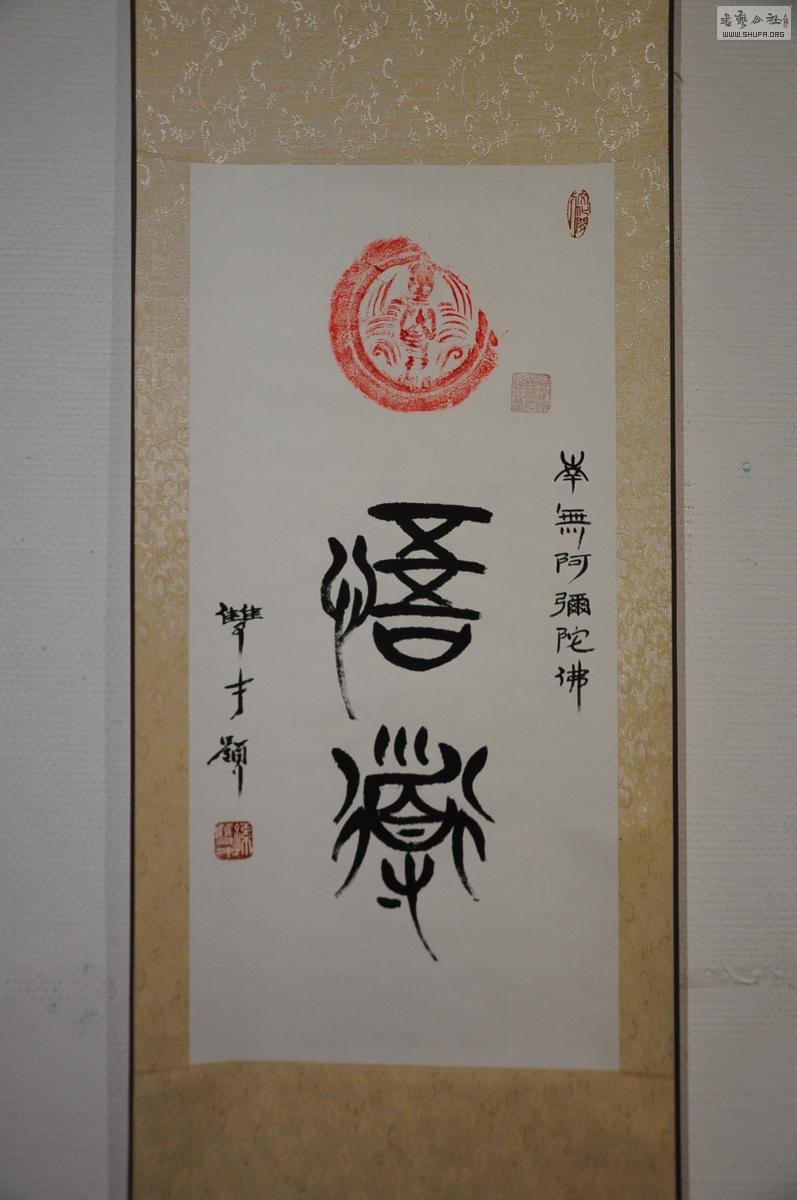 書藝公社
WWW.SHUFA.ORG
南無阿彌陀佛
悟道
雙才題